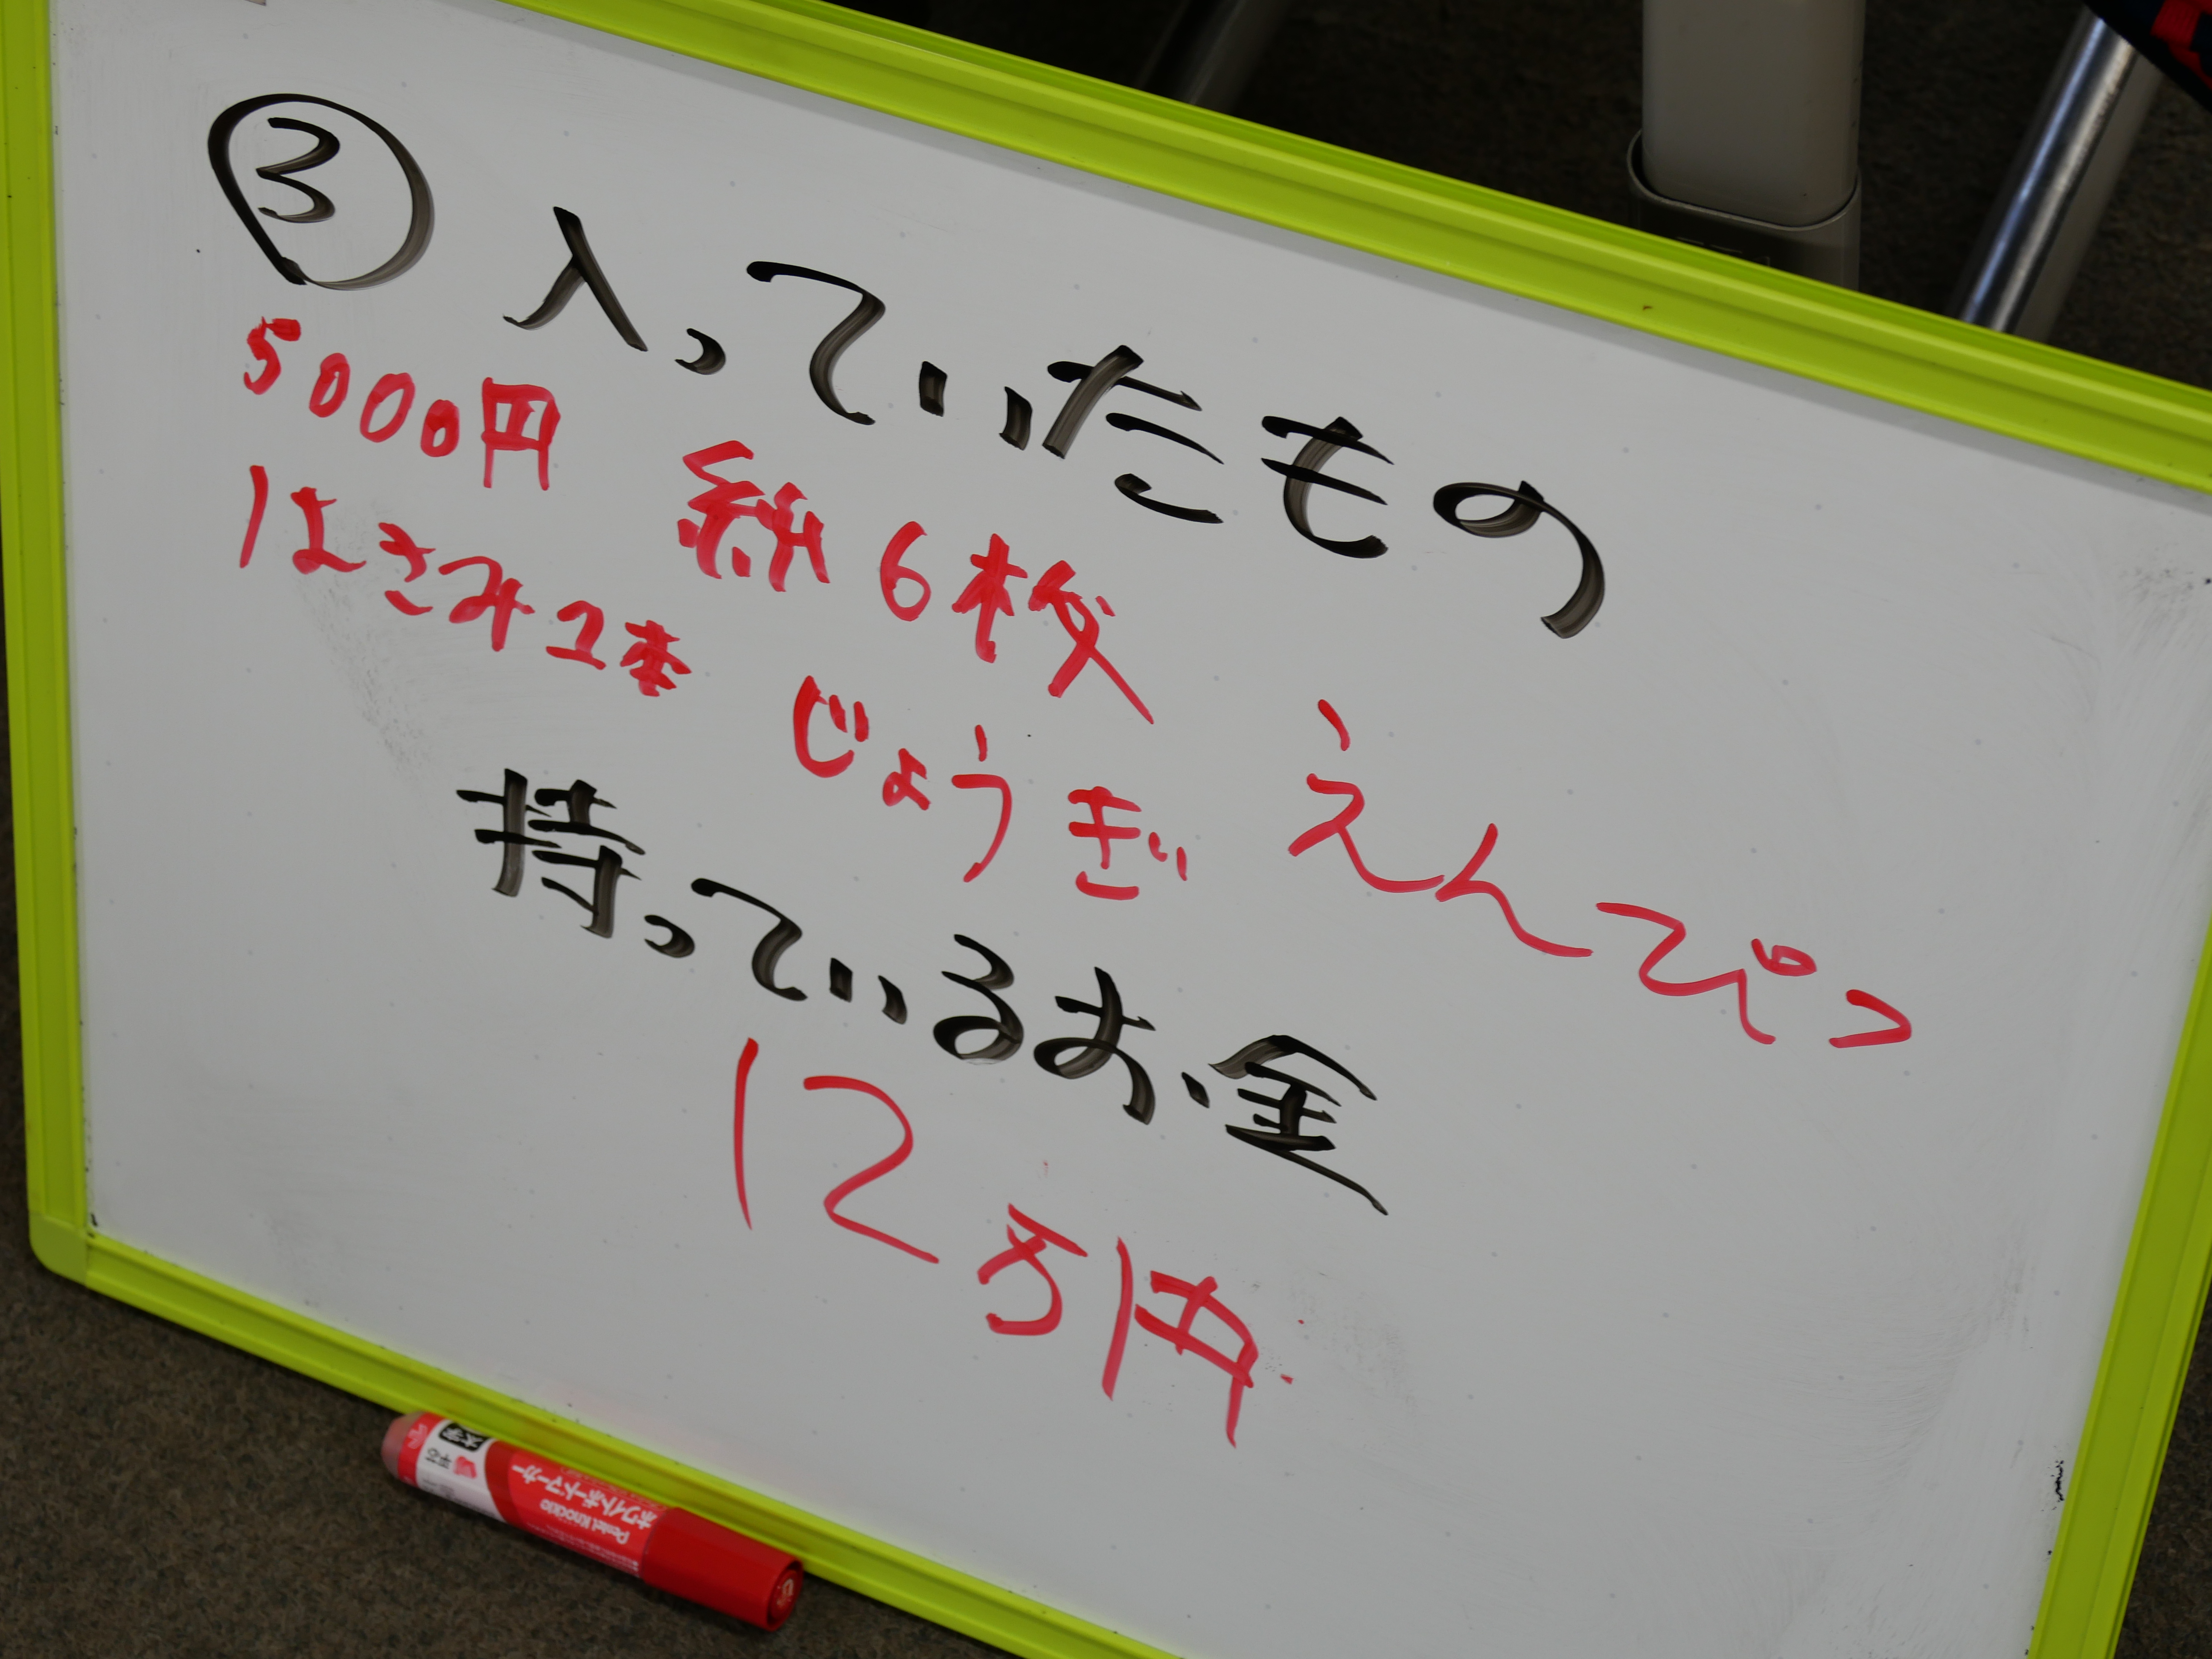 ③ 入っていたもの
5000円 紙6枚 えんぴつ
はさみ2本 じょうぎ
持っているお金
12万円
Pentel Knockle
ホワイトボードマーカー